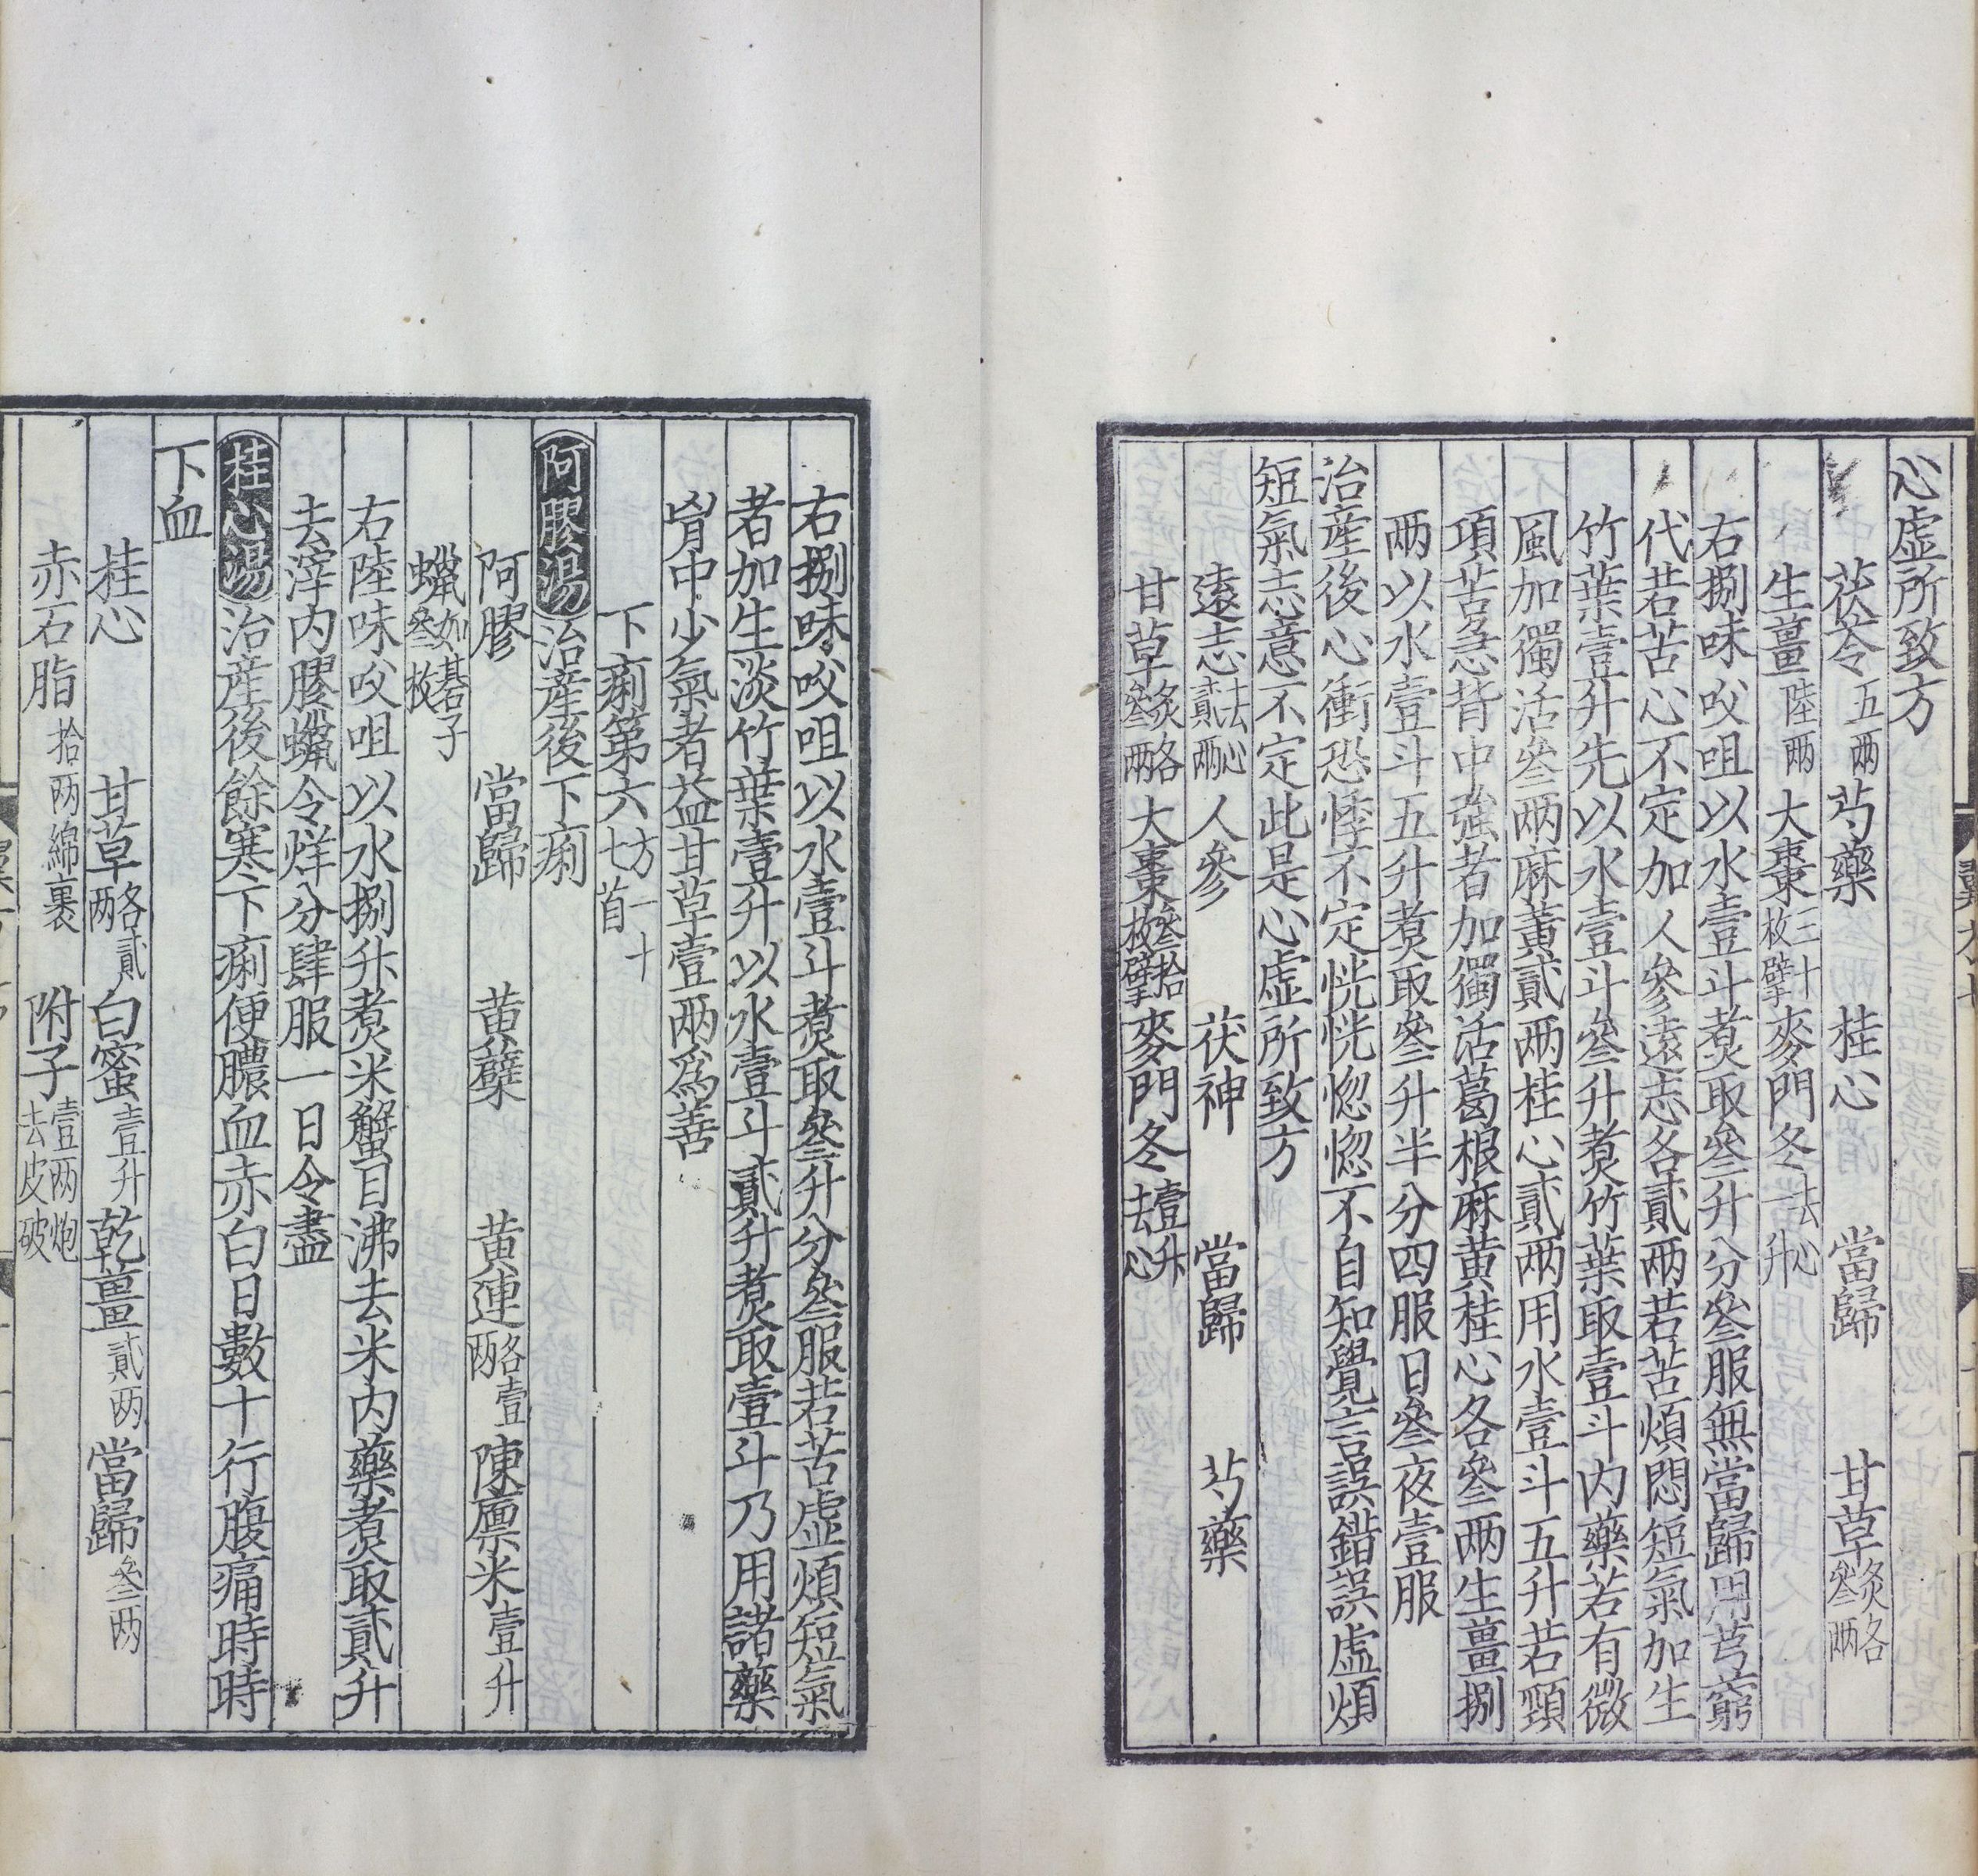 心虛所致方
茯苓五兩 芍藥 桂心 當歸 甘草炙各叄兩
生薑陸兩 大棗三十枚擘 麥門冬去心一升
右捌味㕮咀以水壹斗煮取叄升分叄服無當歸用芎藭
代若苦心不定加人參遠志各貳兩若苦煩悶短氣加生
竹葉壹升先以水壹斗叄升煮竹葉取壹斗内藥若有微
風加獨活叄兩麻黃貳兩桂心貳兩用水壹斗五升若頸
項苦急背中強者加獨活葛根麻黃桂心各叄兩生薑捌
兩以水壹斗五升煮取叄升半分四服日叄夜壹服
治産後心衝恐悸不定恍恍惚惚不自知覺言語錯誤虛煩
短氣志意不定此是心虛所致方
遠志去心貳兩 人參 茯神 當歸 芍藥
甘草炙各叄兩 大棗叄拾枚擘 麥門冬壹升去心
右捌味㕮咀以水壹斗煮取叄升分叄服若苦虛煩短氣
者加生淡竹葉壹升以水壹斗貳升煮取壹斗乃用諸藥
胷中少氣者益甘草壹兩爲善
下痢第六方一十七首
阿膠湯治産後下痢
阿膠 當歸 黄蘗 黄連各壹兩 陳廪米壹升
蠟如碁子叄枚
右陸味㕮咀以水捌升煮米蟹目沸去米内藥煮取貳升
去滓内膠蠟令烊分肆服一日令盡
桂心湯治産後餘寒下痢便膿血赤白日數十行腹痛時時
下血
桂心 甘草各貳兩 白蜜壹升 乾薑貳兩 當歸叄兩
赤石脂拾兩綿裹 附子壹兩炮去皮破